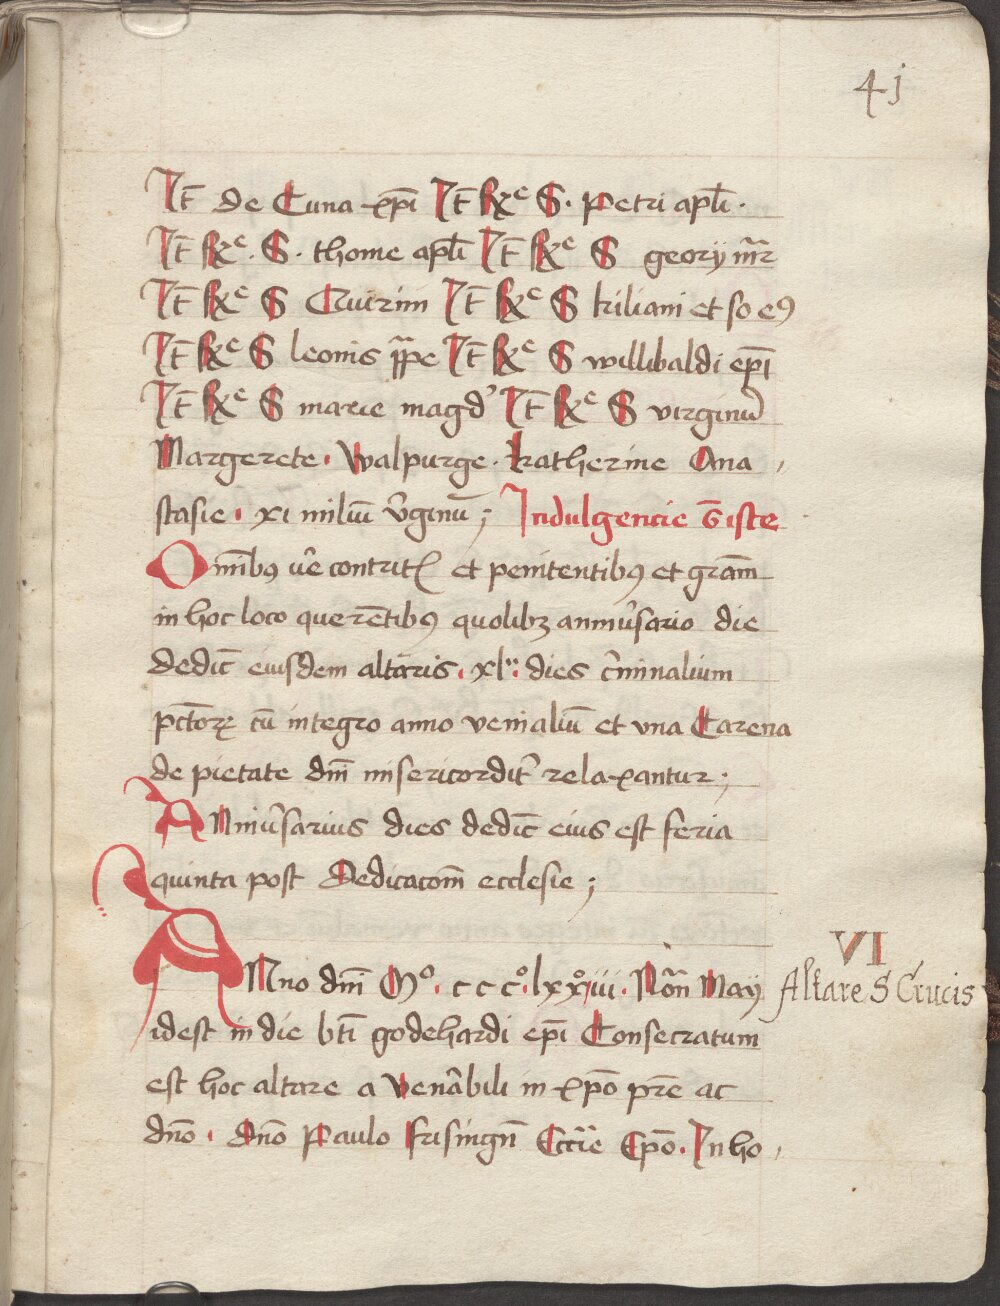 41
It̄ de Cuna xp̄i It̄ Rx̄e S. Petri apl̄i.
It̄ Rx̄e. S. thome apl̄i It̄ Rx̄e S georij mr̄
It̄ Rx̄e S Quirini It̄ Rx̄e S kiliani et so eꝰ
It̄ Rx̄e S leonis pp̄e It̄ Rx̄e S willibaldi ep̄i
It̄ Rx̄e S marie magd' It̄ Rx̄e S virginū
Margerete. Walpurge. katherine Ana
stasie. xi miliū v̓ginū; Indulgencie iste
Om̄ibꝰ v̓e contrit' et penitentibꝰ et gr̄am
in hoc loco querētibꝰ quolibꝫ anniv̓sario die
dedic̄ eiusdem altaris. xl. dies c̓minalium
pctōrꝝ cū integro anno venialiū et vna Carena
de pietate dm̄ misericordit̓ relaxantur;
Anniv̓sarius dies dedic̄ eius est feria
quinta post dedicacōm ecclesie;
Anno dm̄ Mº. c c cº. lxxº iii. Nōn May
VI
Altare S Crucis
idest in die bt̄i godehardi ep̄i Consecratum
est hoc altare a venābili in xp̄o pr̄e ac
dn̄o. dn̄o Paulo frisingn̄ Ecc̄ie Ep̄o. In ho